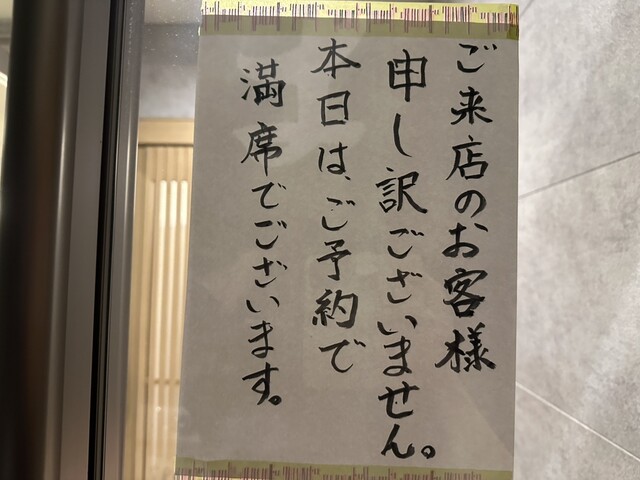 ご来店のお客様
申し訳ございません。
本日は、ご予約で
満席でございます。